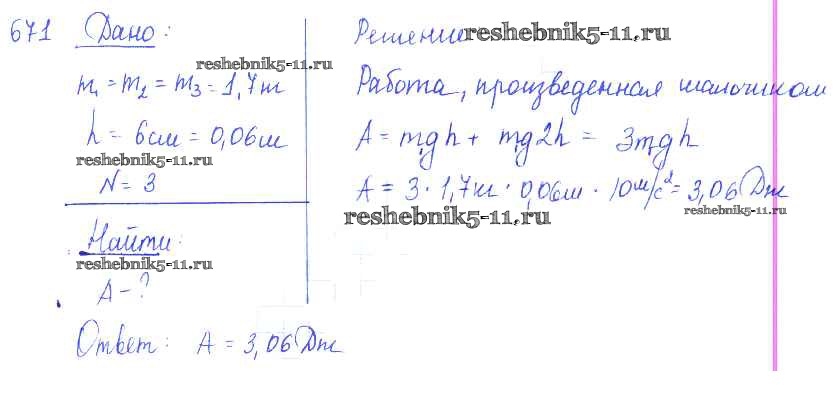 671 Дано:
reshebnik5-11.ru
m₁ = m₂ = m₃ = 1,7 кг
h = 6 см = 0,06 м
reshebnik5-11.ru
N = 3
Найти:
reshebnik5-11.ru
A - ?
Решение reshebnik5-11.ru
Работа, произведенная мальчиком
A = mgh + mg2h = 3mgh
A = 3 · 1,7 кг · 0,06 м · 10 м/с² = 3,06 Дж
reshebnik5-11.ru
reshebnik5-11.ru
Ответ: A = 3,06 Дж